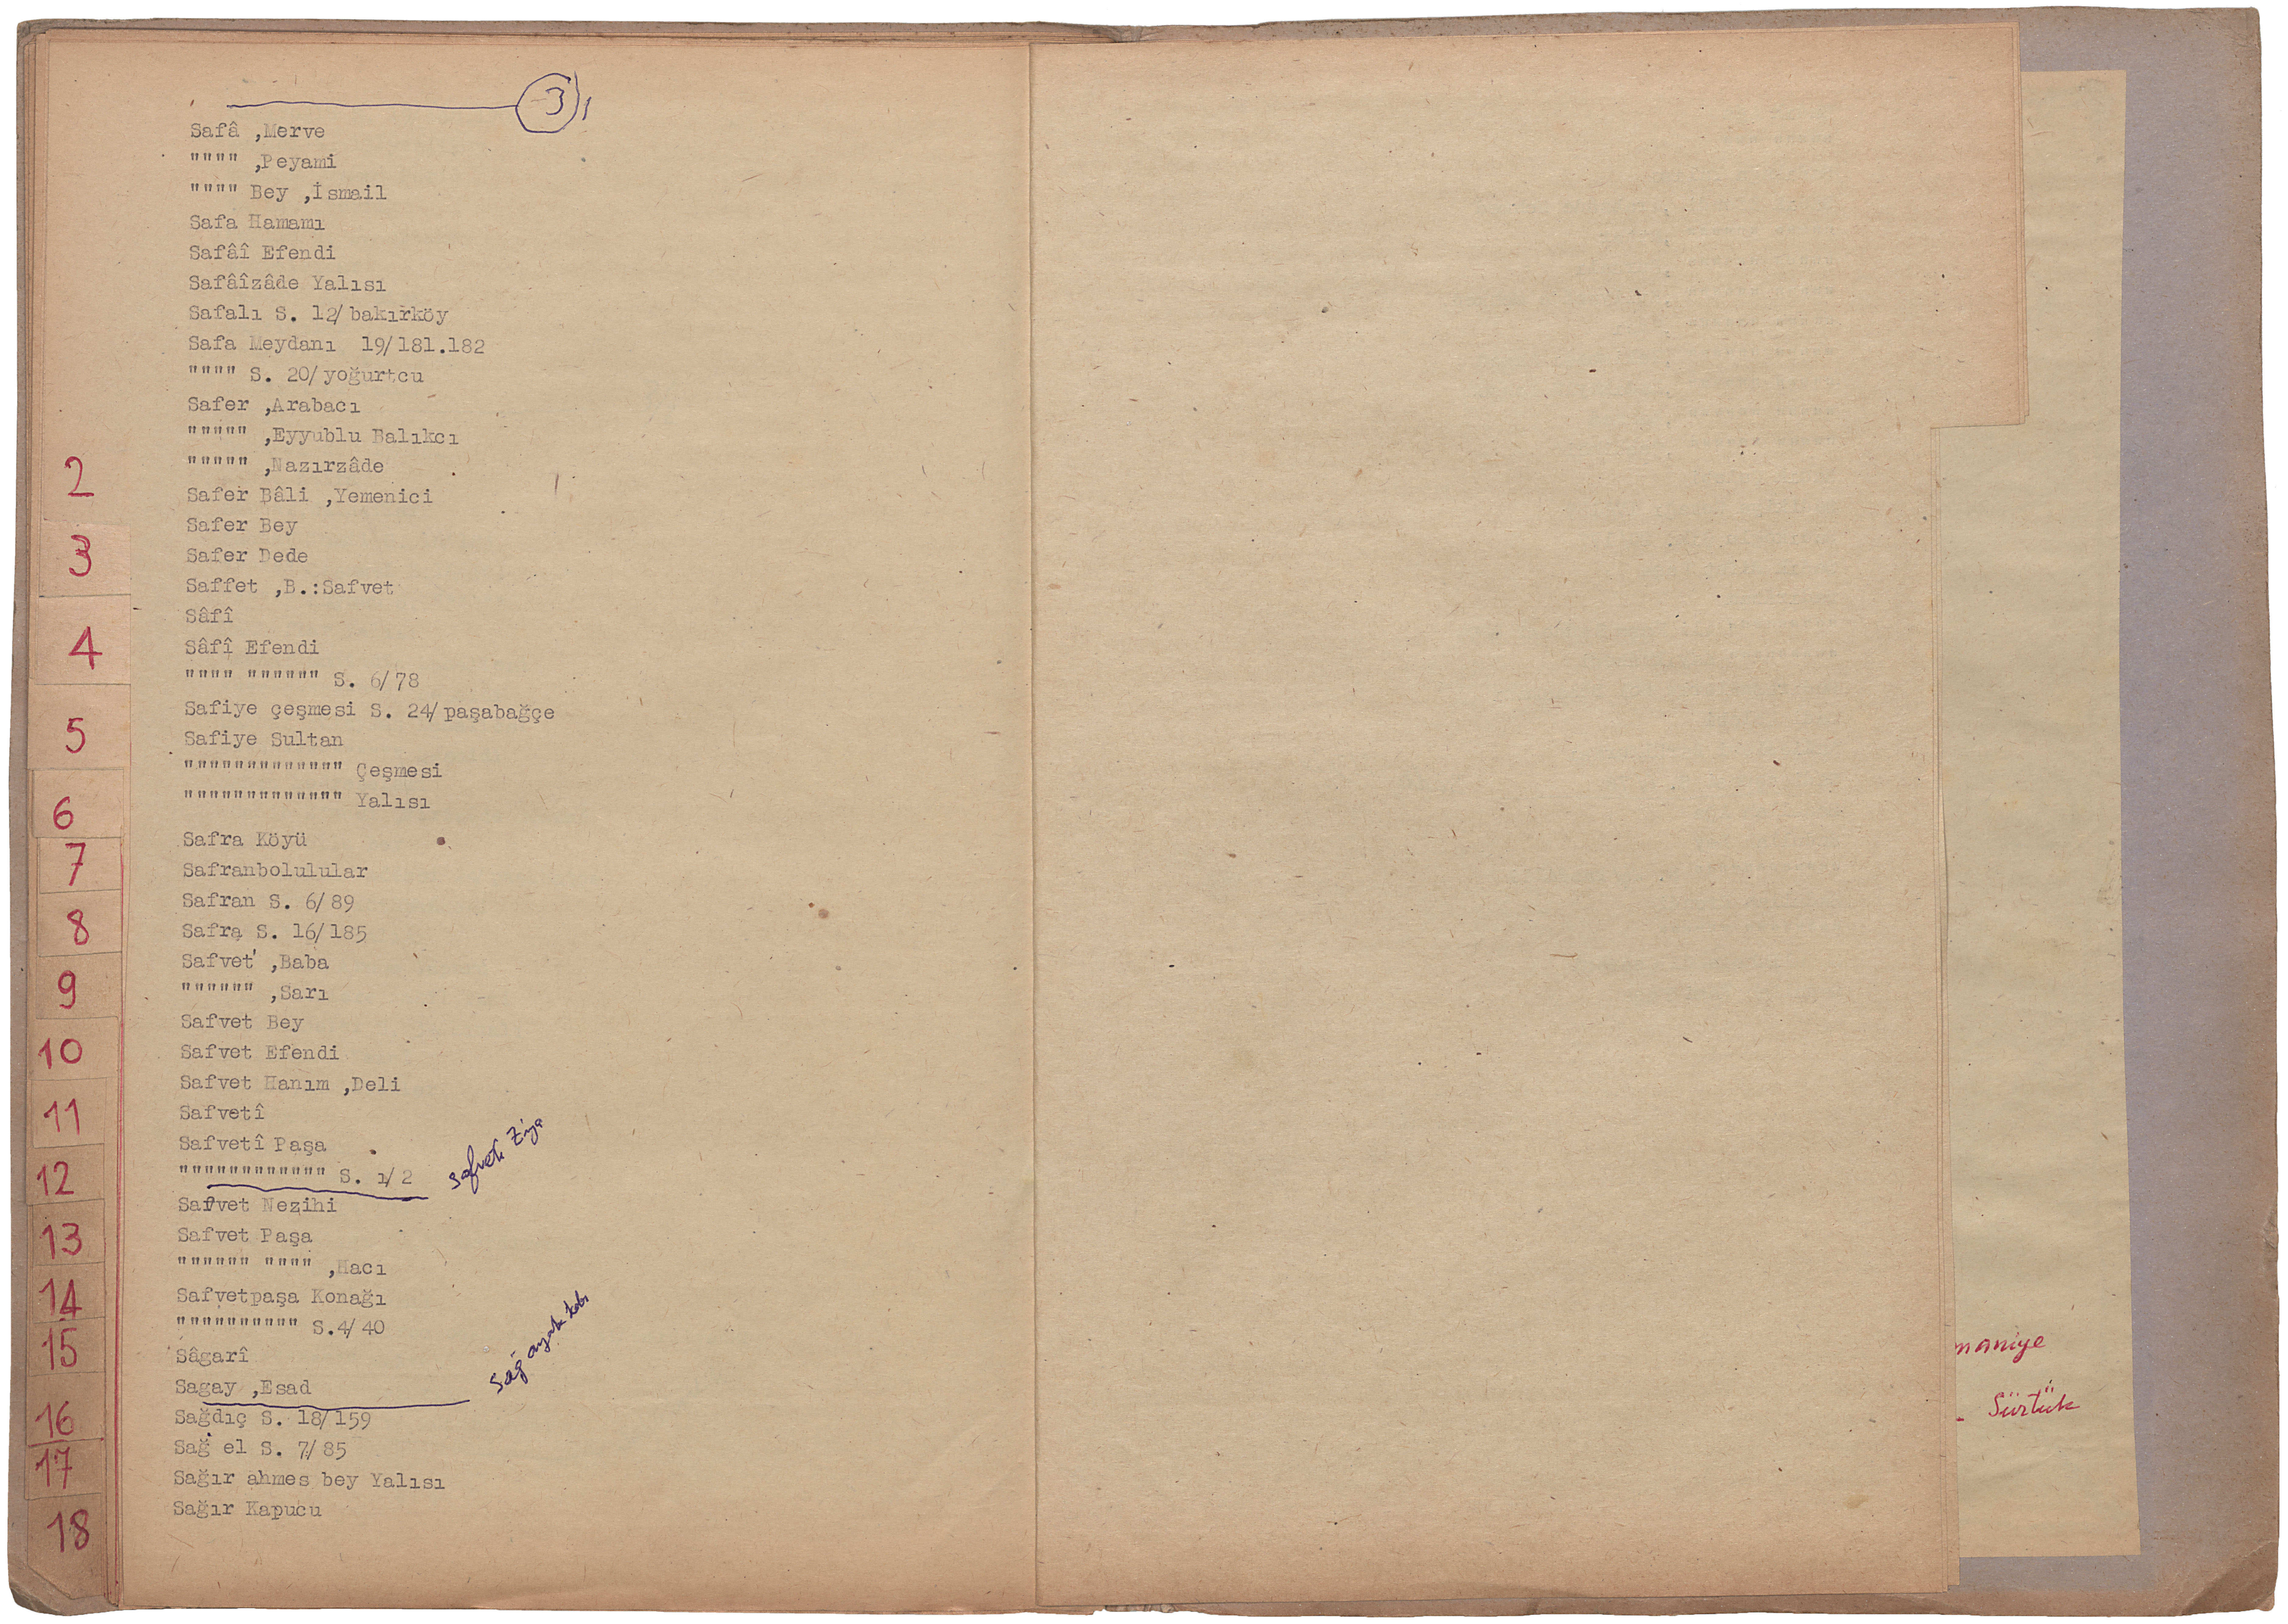 3
Safâ ,Merve
"""" ,Peyami
"""" Bey ,İsmail
Safa Hamamı
Safâî Efendi
Safâîzâde Yalısı
Safalı S. 12/bakırköy
Safa Meydanı 19/181.182
"""" S. 20/yoğurtcu
Safer ,Arabacı
""""" ,Eyyublu Balıkcı
""""" ,Nazırzâde
Safer Bâli ,Yemenici
Safer Bey
Safer Dede
Saffet ,B.:Safvet
Sâfî
Sâfî Efendi
"""" """""" S. 6/78
Safiye çeşmesi S. 24/paşabağçe
Safiye Sultan
""""""""""""" Çeşmesi
""""""""""""" Yalısı
Safra Köyü
Safranbolulular
Safran S. 6/89
Safra S. 16/185
Safvet ,Baba
"""""" ,Sarı
Safvet Bey
Safvet Efendi
Safvet Hanım ,Deli
Safvetî
Safvetî Paşa
"""""""""""" S. 1/2
Safveti Ziya
Safvet Nezihi
Safvet Paşa
"""""" """" ,Hacı
Safvetpaşa Konağı
"""""""""" S.4/40
Sâgarî
Sagay ,Esad
Sağ ayak kabı
Sağdıç S. 18/159
Sağ el S. 7/85
Sağır ahmes bey Yalısı
Sağır Kapucu
2
3
4
5
6
7
8
9
10
11
12
13
14
15
16
17
18
maniye
Sürtük